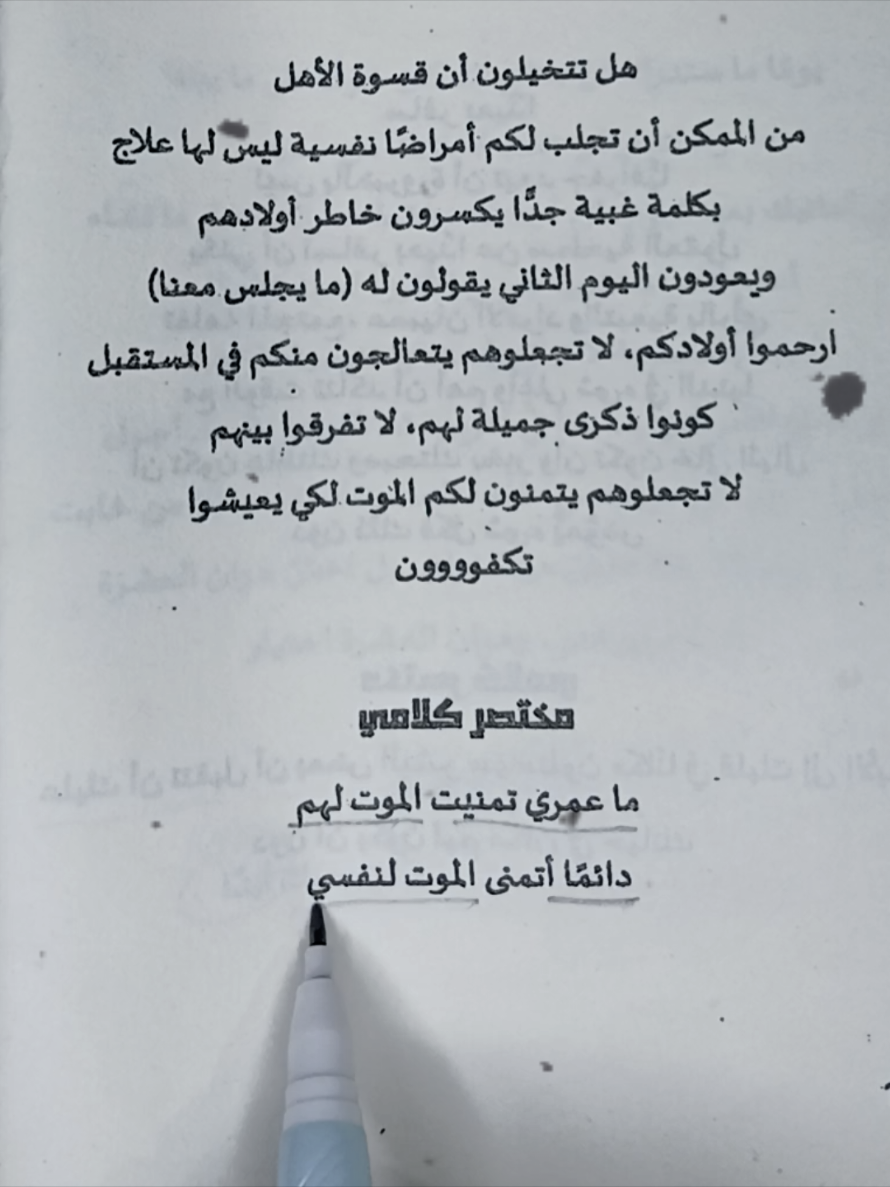 هل تتخيلون أن قسوة الأهل
من الممكن أن تجلب لكم أمراضًا نفسية ليس لها علاج
بكلمة غبية جدًّا يكسرون خاطر أولادهم
ويعودون اليوم الثاني يقولون له (ما يجلس معنا)
ارحموا أولادكم، لا تجعلوهم يتعالجون منكم في المستقبل
كونوا ذكرى جميلة لهم، لا تفرقوا بينهم
لا تجعلوهم يتمنون لكم الموت لكي يعيشوا
تكفوووون
مختصر كلامي
ما عمري تمنيت الموت لهم
دائمًا أتمنى الموت لنفسي